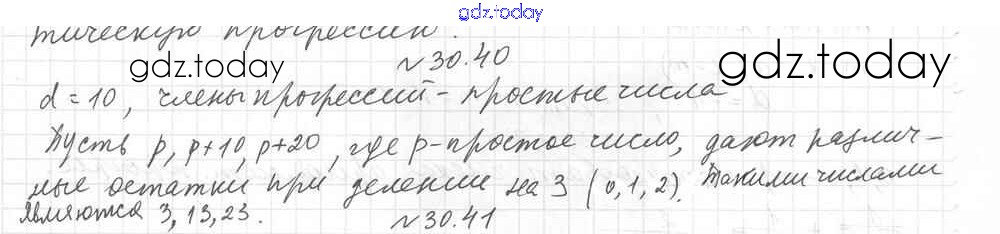 gdz.today
тическую прогрессии.
№30.40
gdz.today
gdz.today
d=10, члены прогрессий - простые числа
Пусть p, p+10, p+20, где p-простое число, дают различ-
ные остатки при делении на 3 (0,1,2). Такими числами
являются 3, 13, 23.
№30.41